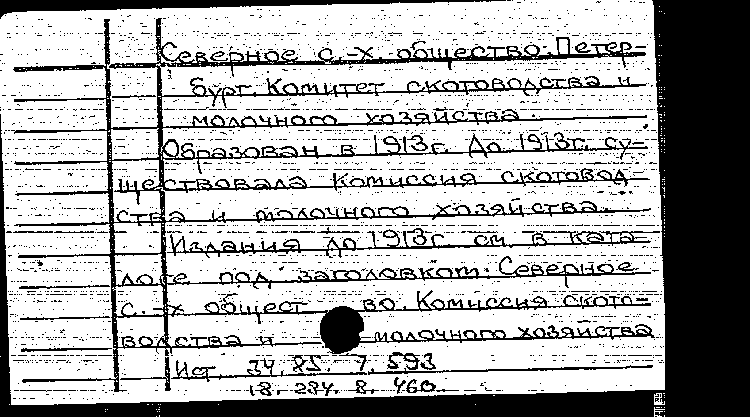 Северное с.-х. общество. Петер-
бург. Комитет скотоводства и
молочного хозяйства.
Образован в 1913г. До 1913г. су-
ществовала Комиссия скотовод-
ства и молочного хозяйства.
Издания до 1913г см. в ката-
логе под заголовком: Северное
с.-х общест во. Комиссия ското-
водства и молочного хозяйства
Ист. 34. 85. 7. 593
18. 284. 8. 460.